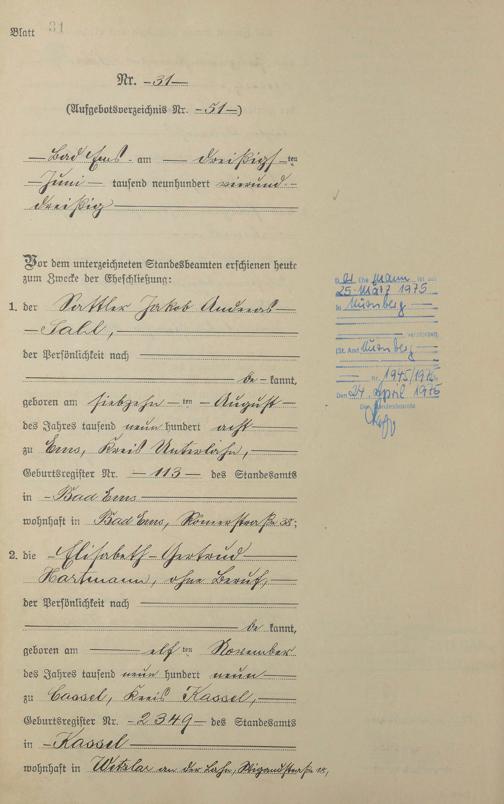 Blatt 31
Nr. -31-
(Aufgebotsverzeichnis Nr. -51-)
- Bad Ems - am - dreißigsten
- Juni - tausend neunhundert vierund-
dreißig
Vor dem unterzeichneten Standesbeamten erschienen heute
zum Zwecke der Eheschließung:
1. der Sattler Jakob Andreas
der Persönlichkeit nach
be-kannt,
geboren am siebzehn-ten - August -
des Jahres tausend neun hundert acht -
zu Ems, Kreis Unterlahn,
Geburtsregister Nr. -113- des Standesamts
in - Bad Ems
wohnhaft in Bad Ems, Römerstraße 38;
2. die - Elisabeth - Gertrud
Hartmann, ohne Beruf,
der Persönlichkeit nach
be kannt,
geboren am elf ten November
des Jahres tausend neun hundert neun -
zu Cassel, Kreis Kassel,
Geburtsregister Nr. -2349- des Standesamts
in - Kassel
wohnhaft in Wetzlar an der Lahn, straße 18,
Ehe Mann ist am
25. März 1975
in Nürnberg
verstorben.
St. Amt Nürnberg
Nr. 1945/1975
Den 24. April 1975
Der Standesbeamte